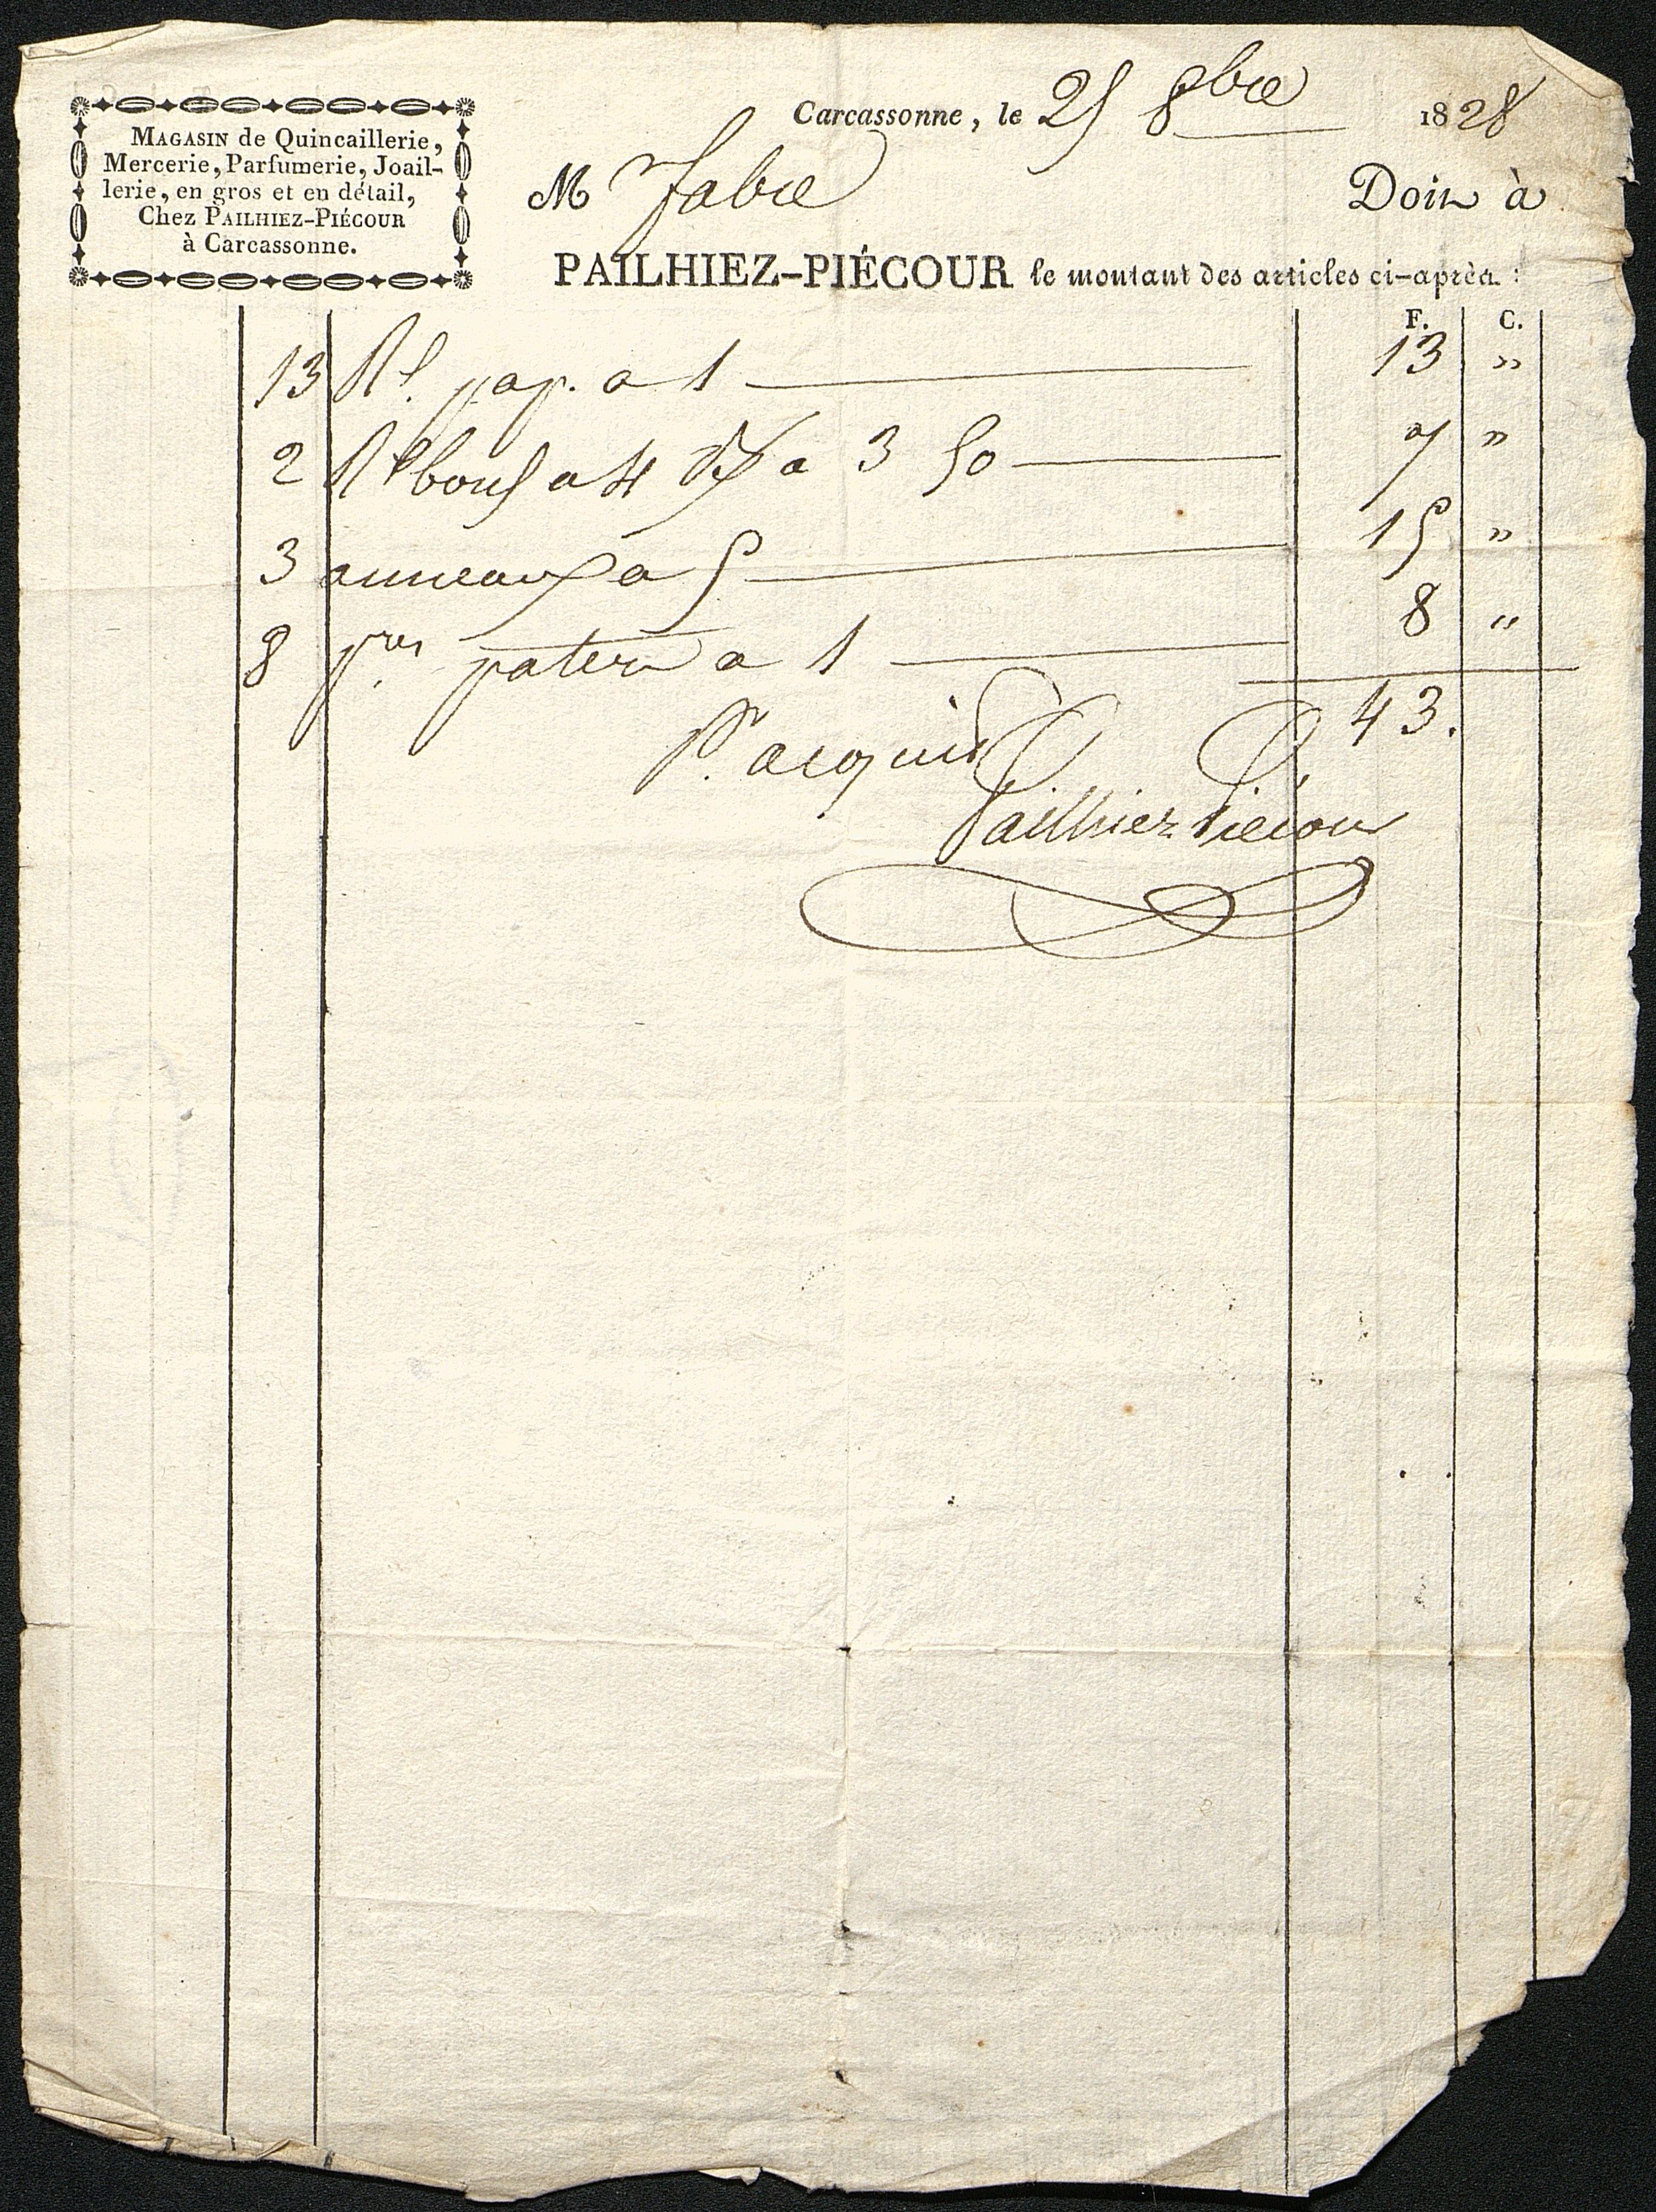 MAGASIN de Quincaillerie,
Mercerie, Parfumerie, Joail-
lerie, en gros et en détail,
Chez PAILHIEZ-PIÉCOUR
à Carcassonne.
Carcassonne, le 25 8bre 1828
M Fabre Doit à
PAILHIEZ-PIÉCOUR le montant des articles ci-après :
F. C.
13 Rx pap. a 1 13 »
2 a 3 50 7 »
3 anneaux a 5 15 »
8 pres patere a 1 8 »
43.
Pr. acquit
Pailhiez Piécour